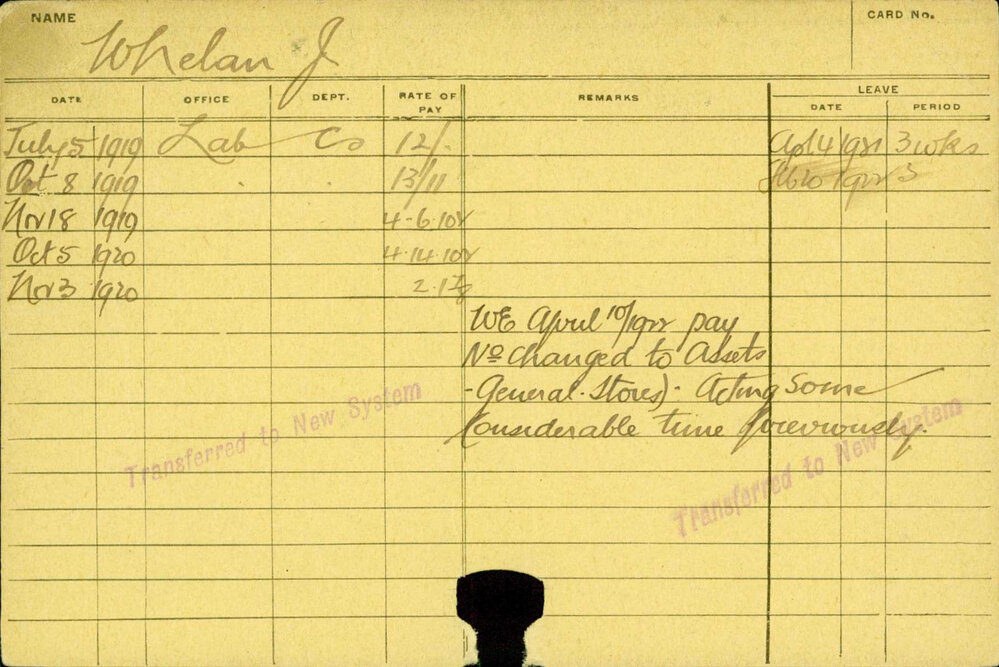 NAME
CARD No.
Whelan J
DATE OFFICE DEPT. RATE OF PAY REMARKS LEAVE
DATE PERIOD
July 5 1919 Lab Co 12/- Apl 4 1921 3 wks
Oct 8 1919 . . 13/11 1922 3
Nov 18 1919 4-6-10
Oct 5 1920 4-14-10
Nov 3 1920 2.
WE April 10/1922 pay
No changed to Assets
-General Stores)- Acting Some
Considerable time previously.
Transferred to New System
Transferred to New System